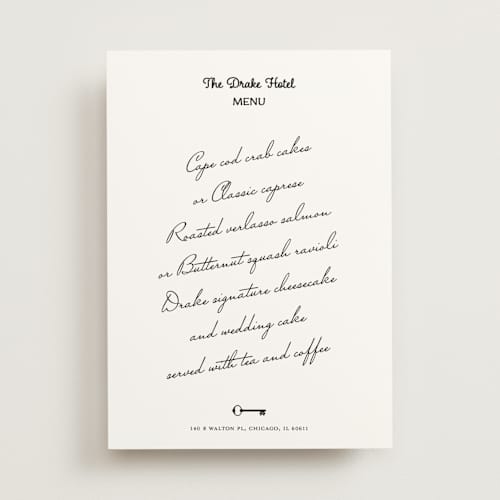 The Drake Hotel
MENU
Cape cod crab cakes
or Classic caprese
Roasted verlasso salmon
or Butternut squash ravioli
Drake signature cheesecake
and wedding cake
served with tea and coffee
140 E WALTON PL, CHICAGO, IL 60611